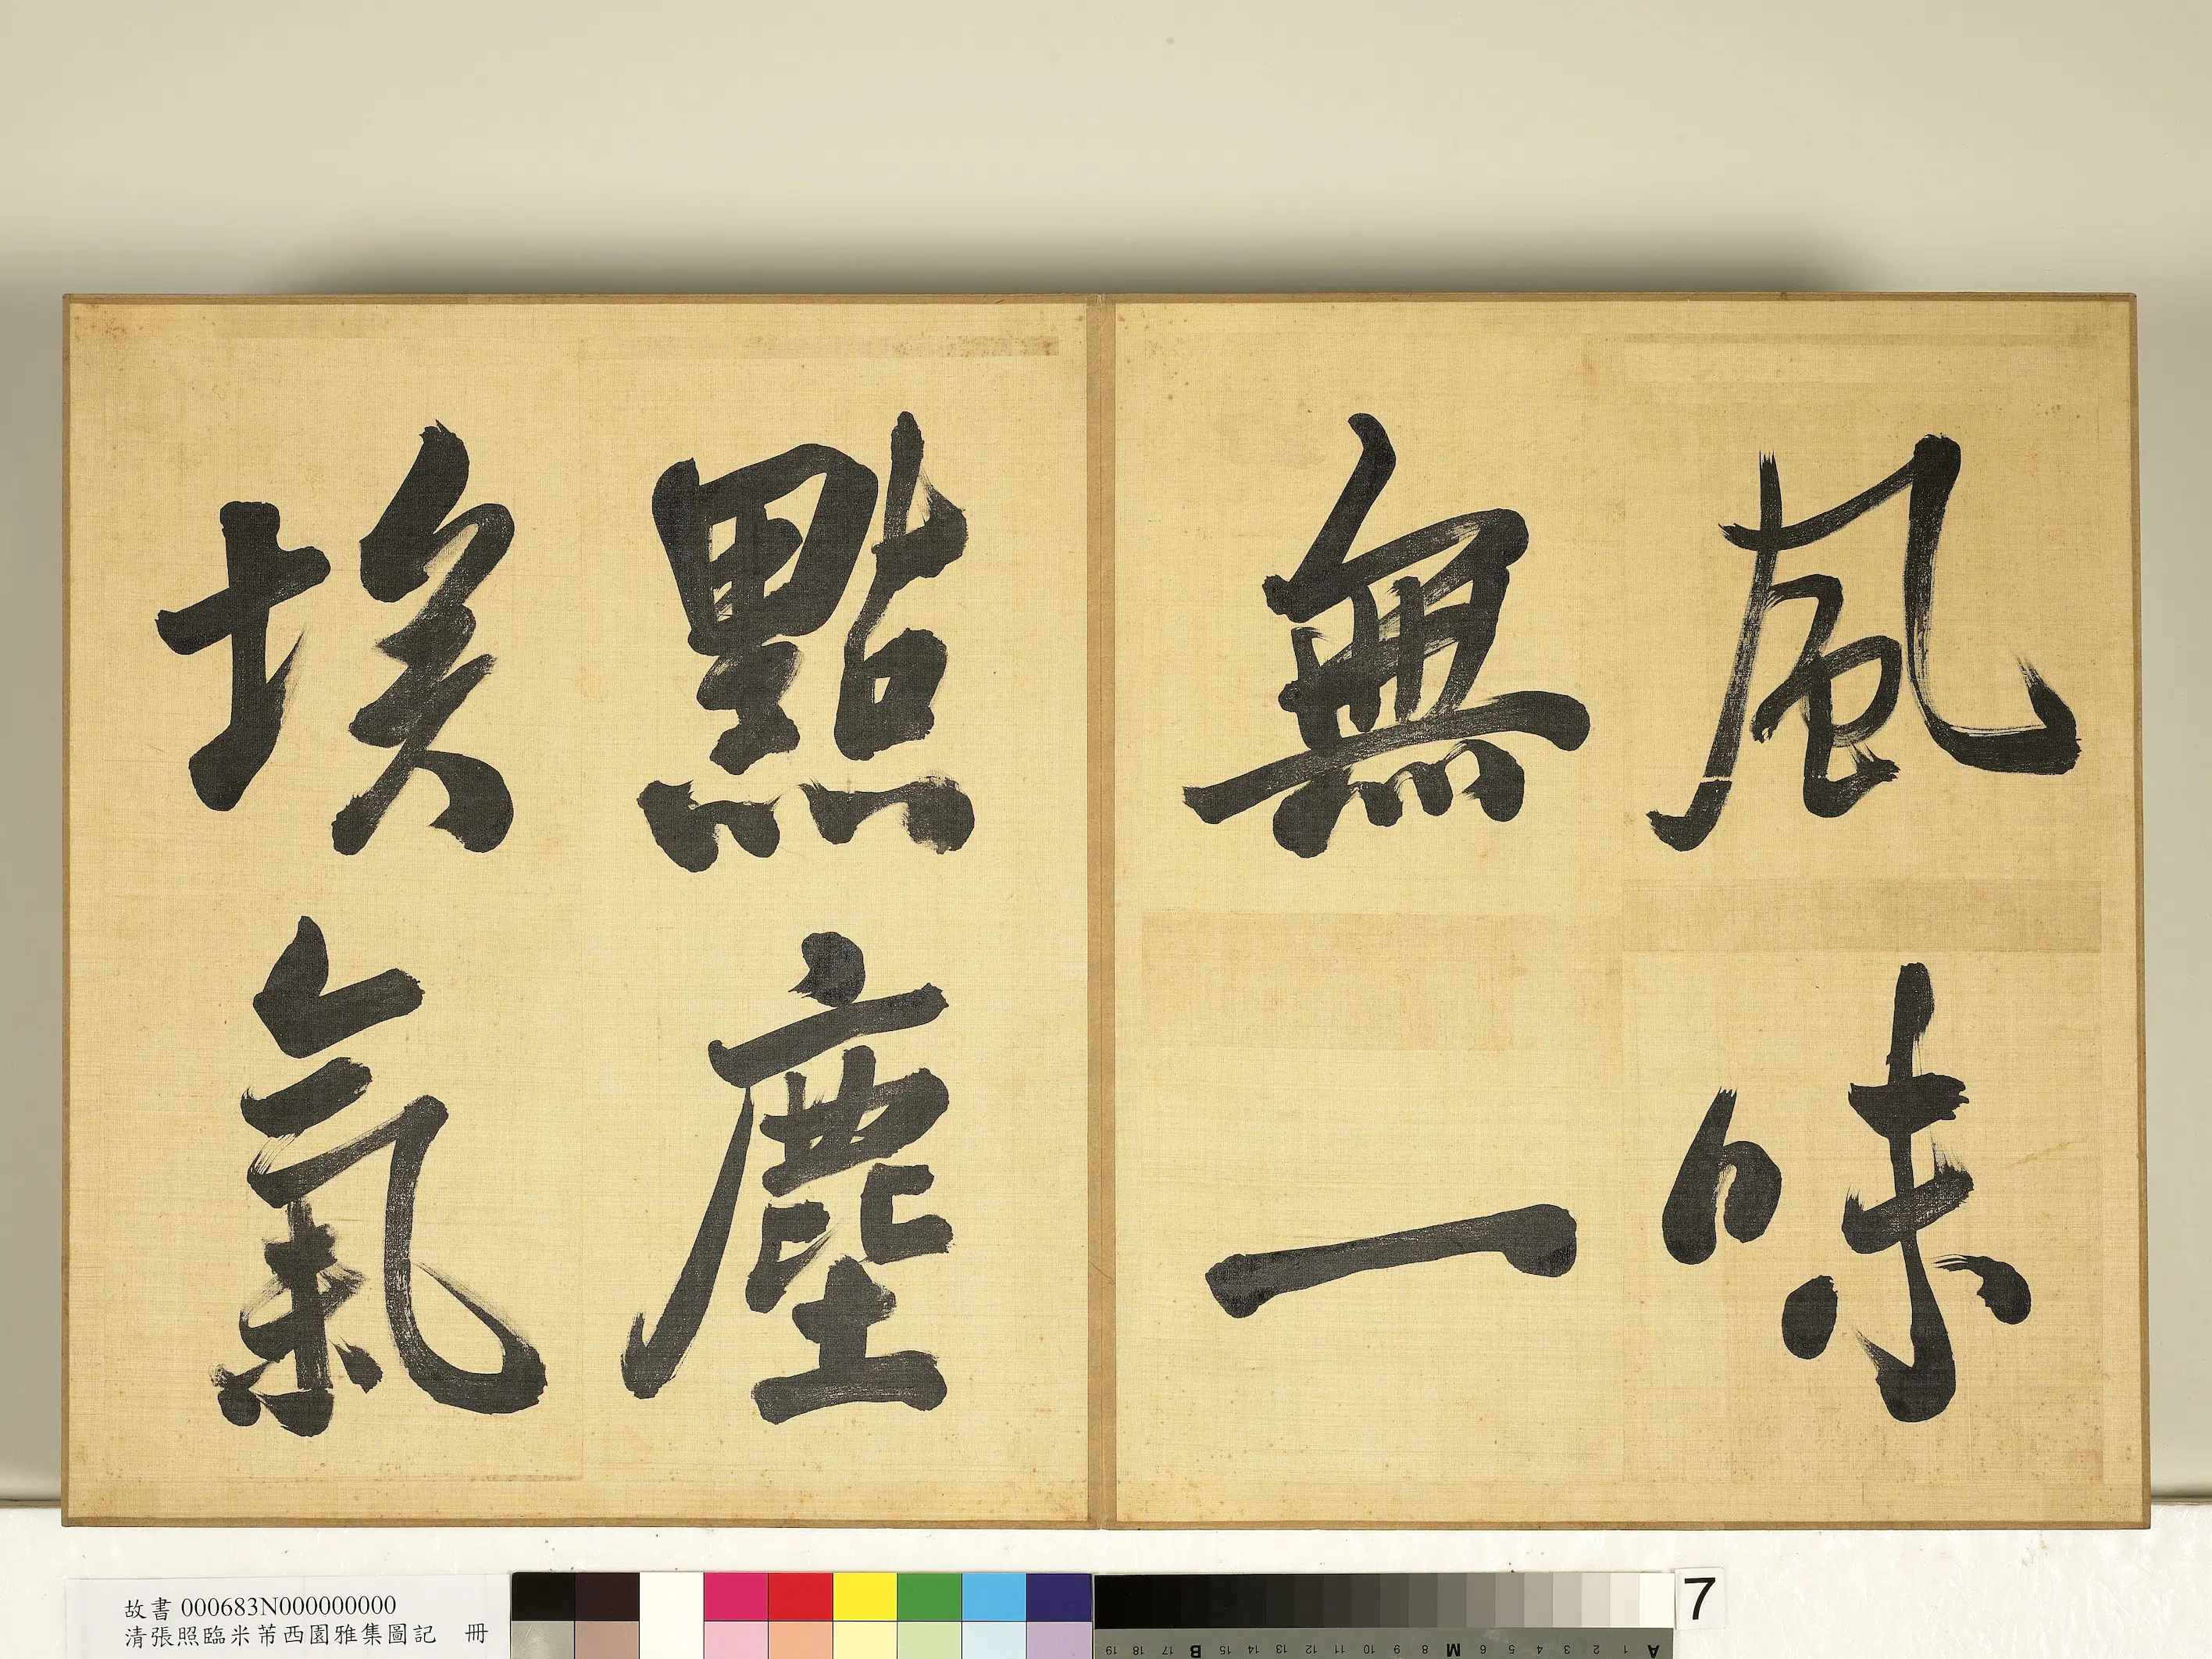 風味
無一
點塵
埃氣
故書 000683N000000000
清張照臨米芾西園雅集圖記 冊
7
19 18 17 B 15 14 13 12 11 10 9 8 M 6 5 4 3 2 1 A